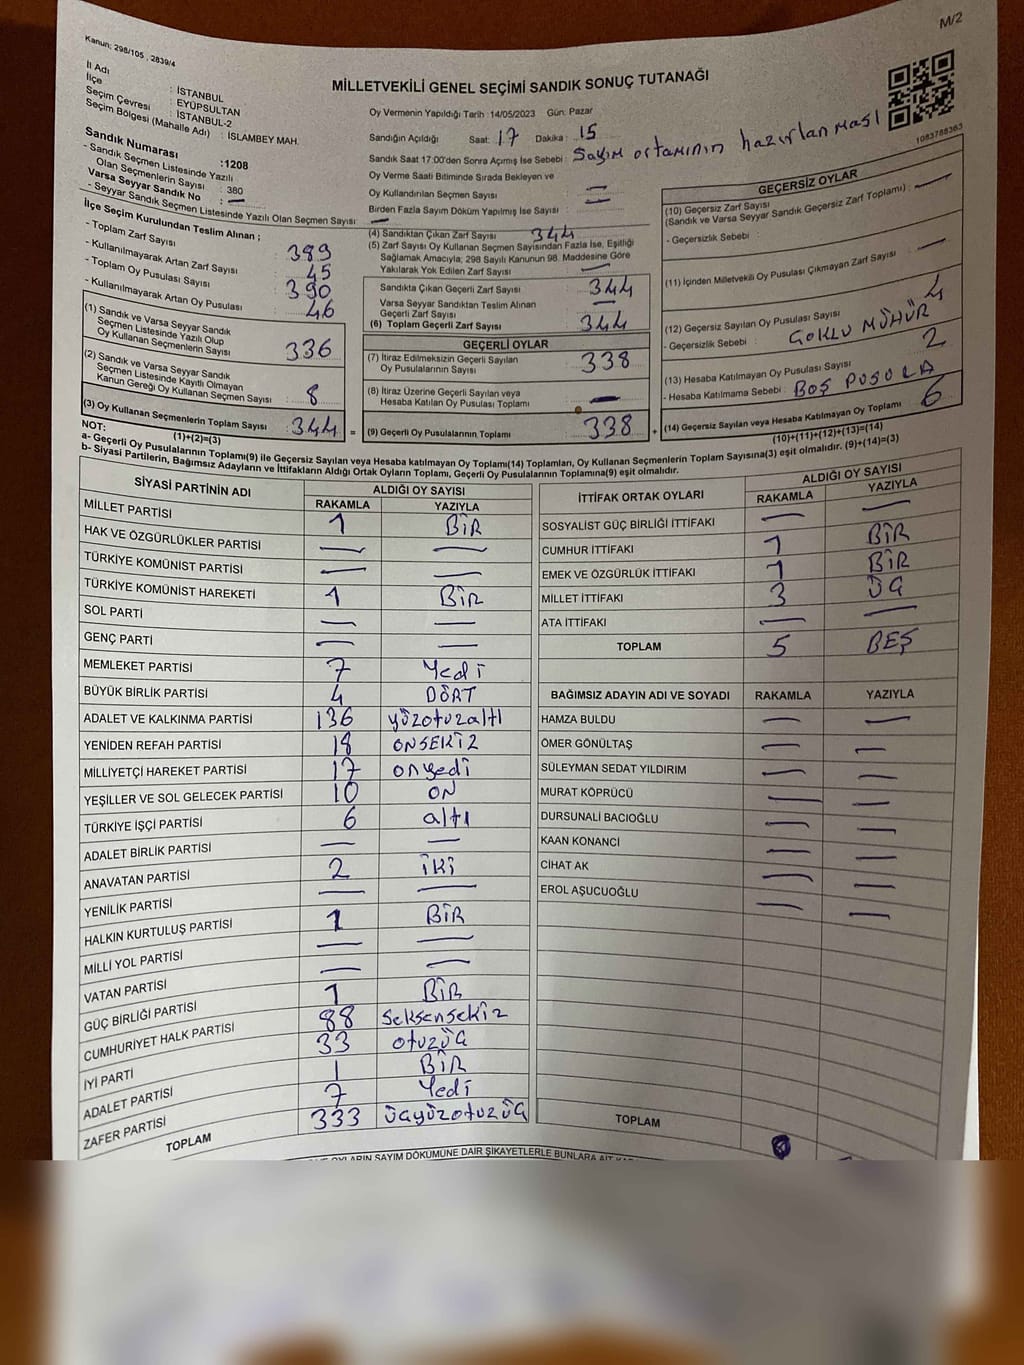 M/2
Kanun: 298/105 , 2839/4
MİLLETVEKİLİ GENEL SEÇİMİ SANDIK SONUÇ TUTANAĞI
İl Adı : İSTANBUL
İlçe : EYÜPSULTAN
Seçim Çevresi : İSTANBUL-2
Seçim Bölgesi (Mahalle Adı) : İSLAMBEY MAH.
Oy Vermenin Yapıldığı Tarih : 14/05/2023 Gün: Pazar
Sandığın Açıldığı Saat: 17 Dakika : 15
Sandık Saat 17:00'den Sonra Açımış İse Sebebi : Sayım ortamının hazırlanması
Oy Verme Saati Bitiminde Sırada Bekleyen ve
Oy Kullandırılan Seçmen Sayısı : —
Birden Fazla Sayım Döküm Yapılmış İse Sayısı : —
1083788363
Sandık Numarası :1208
- Sandık Seçmen Listesinde Yazılı
Olan Seçmenlerin Sayısı : 380
Varsa Seyyar Sandık No : —
- Seyyar Sandık Seçmen Listesinde Yazılı Olan Seçmen Sayısı : —
İlçe Seçim Kurulundan Teslim Alınan ;
- Toplam Zarf Sayısı : 389
- Kullanılmayarak Artan Zarf Sayısı : 45
- Toplam Oy Pusulası Sayısı : 390
- Kullanılmayarak Artan Oy Pusulası : 46
(1) Sandık ve Varsa Seyyar Sandık
Seçmen Listesinde Yazılı Olup
Oy Kullanan Seçmenlerin Sayısı : 336
(2) Sandık ve Varsa Seyyar Sandık
Seçmen Listesinde Kayıtlı Olmayan
Kanun Gereği Oy Kullanan Seçmen Sayısı : 8
(3) Oy Kullanan Seçmenlerin Toplam Sayısı : 344 =
(1)+(2)=(3)
(4) Sandıktan Çıkan Zarf Sayısı : 344
(5) Zarf Sayısı Oy Kullanan Seçmen Sayısından Fazla İse, Eşitliği
Sağlamak Amacıyla; 298 Sayılı Kanunun 98. Maddesine Göre
Yakılarak Yok Edilen Zarf Sayısı : —
Sandıkta Çıkan Geçerli Zarf Sayısı : 344
Varsa Seyyar Sandıktan Teslim Alınan
Geçerli Zarf Sayısı : —
(6) Toplam Geçerli Zarf Sayısı : 344
GEÇERLİ OYLAR
(7) İtiraz Edilmeksizin Geçerli Sayılan
Oy Pusulalarının Sayısı : 338
(8) İtiraz Üzerine Geçerli Sayılan veya
Hesaba Katılan Oy Pusulası Toplamı : —
(9) Geçerli Oy Pusulalarının Toplamı : 338 +
GEÇERSİZ OYLAR
(10) Geçersiz Zarf Sayısı
(Sandık ve Varsa Seyyar Sandık Geçersiz Zarf Toplamı) : —
- Geçersizlik Sebebi :
(11) İçinden Milletvekili Oy Pusulası Çıkmayan Zarf Sayısı : —
(12) Geçersiz Sayılan Oy Pusulası Sayısı : 4
- Geçersizlik Sebebi : ÇOKLU MÜHÜR
(13) Hesaba Katılmayan Oy Pusulası Sayısı : 2
- Hesaba Katılmama Sebebi : BOŞ PUSULA
(14) Geçersiz Sayılan veya Hesaba Katılmayan Oy Toplamı : 6
(10)+(11)+(12)+(13)=(14)
NOT:
a- Geçerli Oy Pusulalarının Toplamı(9) ile Geçersiz Sayılan veya Hesaba katılmayan Oy Toplamı(14) Toplamları, Oy Kullanan Seçmenlerin Toplam Sayısına(3) eşit olmalıdır. (9)+(14)=(3)
b- Siyasi Partilerin, Bağımsız Adayların ve İttifakların Aldığı Ortak Oyların Toplamı, Geçerli Oy Pusulalarının Toplamına(9) eşit olmalıdır.
SİYASİ PARTİNİN ADI ALDIĞI OY SAYISI
RAKAMLA YAZIYLA
MİLLET PARTİSİ 1 BİR
HAK VE ÖZGÜRLÜKLER PARTİSİ — —
TÜRKİYE KOMÜNİST PARTİSİ — —
TÜRKİYE KOMÜNİST HAREKETİ 1 BİR
SOL PARTİ — —
GENÇ PARTİ — —
MEMLEKET PARTİSİ 7 Yedi
BÜYÜK BİRLİK PARTİSİ 4 DÖRT
ADALET VE KALKINMA PARTİSİ 136 yüzotuzaltı
YENİDEN REFAH PARTİSİ 18 ONSEKİZ
MİLLİYETÇİ HAREKET PARTİSİ 17 onyedi
YEŞİLLER VE SOL GELECEK PARTİSİ 10 ON
TÜRKİYE İŞÇİ PARTİSİ 6 altı
ADALET BİRLİK PARTİSİ — —
ANAVATAN PARTİSİ 2 iki
YENİLİK PARTİSİ — —
HALKIN KURTULUŞ PARTİSİ 1 BİR
MİLLİ YOL PARTİSİ — —
VATAN PARTİSİ — —
GÜÇ BİRLİĞİ PARTİSİ 1 BİR
CUMHURİYET HALK PARTİSİ 88 Seksensekiz
İYİ PARTİ 33 otuzüç
ADALET PARTİSİ 1 BİR
ZAFER PARTİSİ 7 Yedi
TOPLAM 333 üçyüzotuzüç
İTTİFAK ORTAK OYLARI ALDIĞI OY SAYISI
RAKAMLA YAZIYLA
SOSYALİST GÜÇ BİRLİĞİ İTTİFAKI — —
CUMHUR İTTİFAKI 1 BİR
EMEK VE ÖZGÜRLÜK İTTİFAKI 1 BİR
MİLLET İTTİFAKI 3 ÜÇ
ATA İTTİFAKI — —
TOPLAM 5 BEŞ
BAĞIMSIZ ADAYIN ADI VE SOYADI RAKAMLA YAZIYLA
HAMZA BULDU — —
ÖMER GÖNÜLTAŞ — —
SÜLEYMAN SEDAT YILDIRIM — —
MURAT KÖPRÜCÜ — —
DURSUNALİ BACIOĞLU — —
KAAN KONANCİ — —
CİHAT AK — —
EROL AŞUCUOĞLU — —
TOPLAM
OYLARIN SAYIM DÖKÜMÜNE DAİR ŞİKAYETLERLE BUNLARA AİT